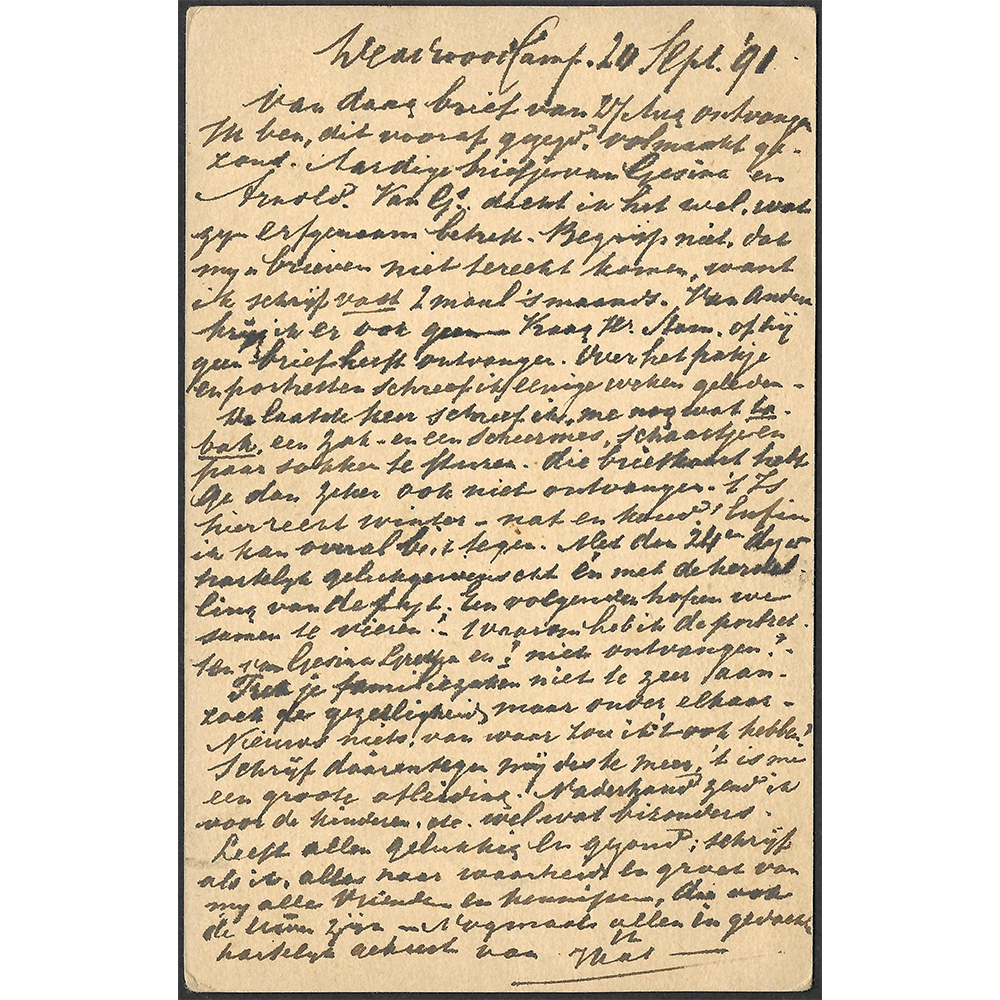 Camp. 20 Sept. '91
Van daag brief van 27 Aug ontvangen
Ik ben, dit vooraf gezegd, volmaakt ge-
zond. Aardige briefje van Gesina en
Arnold. Van Gs. dacht ik het wel, wat
zyn erfgenaam betreft. Begryp niet, dat
myn brieven niet terecht komen, want
ik schryf vast 2 maal 's maands. Van Anderen
kryg ik er ook geen Vraag Hr. Stam. of hy
geen brief heeft ontvangen. Over het pakje
en portretten schreef ik eenige weken geleden -
De laatste keer schreef ik, me nog wat ta-
bak, een zak- en een scheermes, schaartje en
paar sokken te sturen. Die briefkaart hebt
ge dan zeker ook niet ontvangen. 't Is
hier eerst winter - nat en koud! Enfin
ik kan overal tegen. Met den 24en dezer
hartelyk gelukgewenscht en met de herstel-
ling van de fyt. Een volgenden hopen we
samen te vieren! - Waarom heb ik de portret-
ten van Gesina Gretha en ? niet ontvangen? -
Trek je familiezaken niet te zeer aan -
zoek de gezelligheid maar onder elkaar -
Nieuws niets, van waar zou ik 't ook hebben?
Schrijf daarentegen mij des te meer, 't is me
een groote afleiding. Naderhand zend ik
voor de kinderen, etc. wel wat bizonders.
Leeft allen gelukkig en gezond; schryf
als ik, alles naar waarheid en groet van
my alle vrienden en kennissen, die ook
de uwen zyn - Nogmaals allen in gedachte
hartelyk gekust van